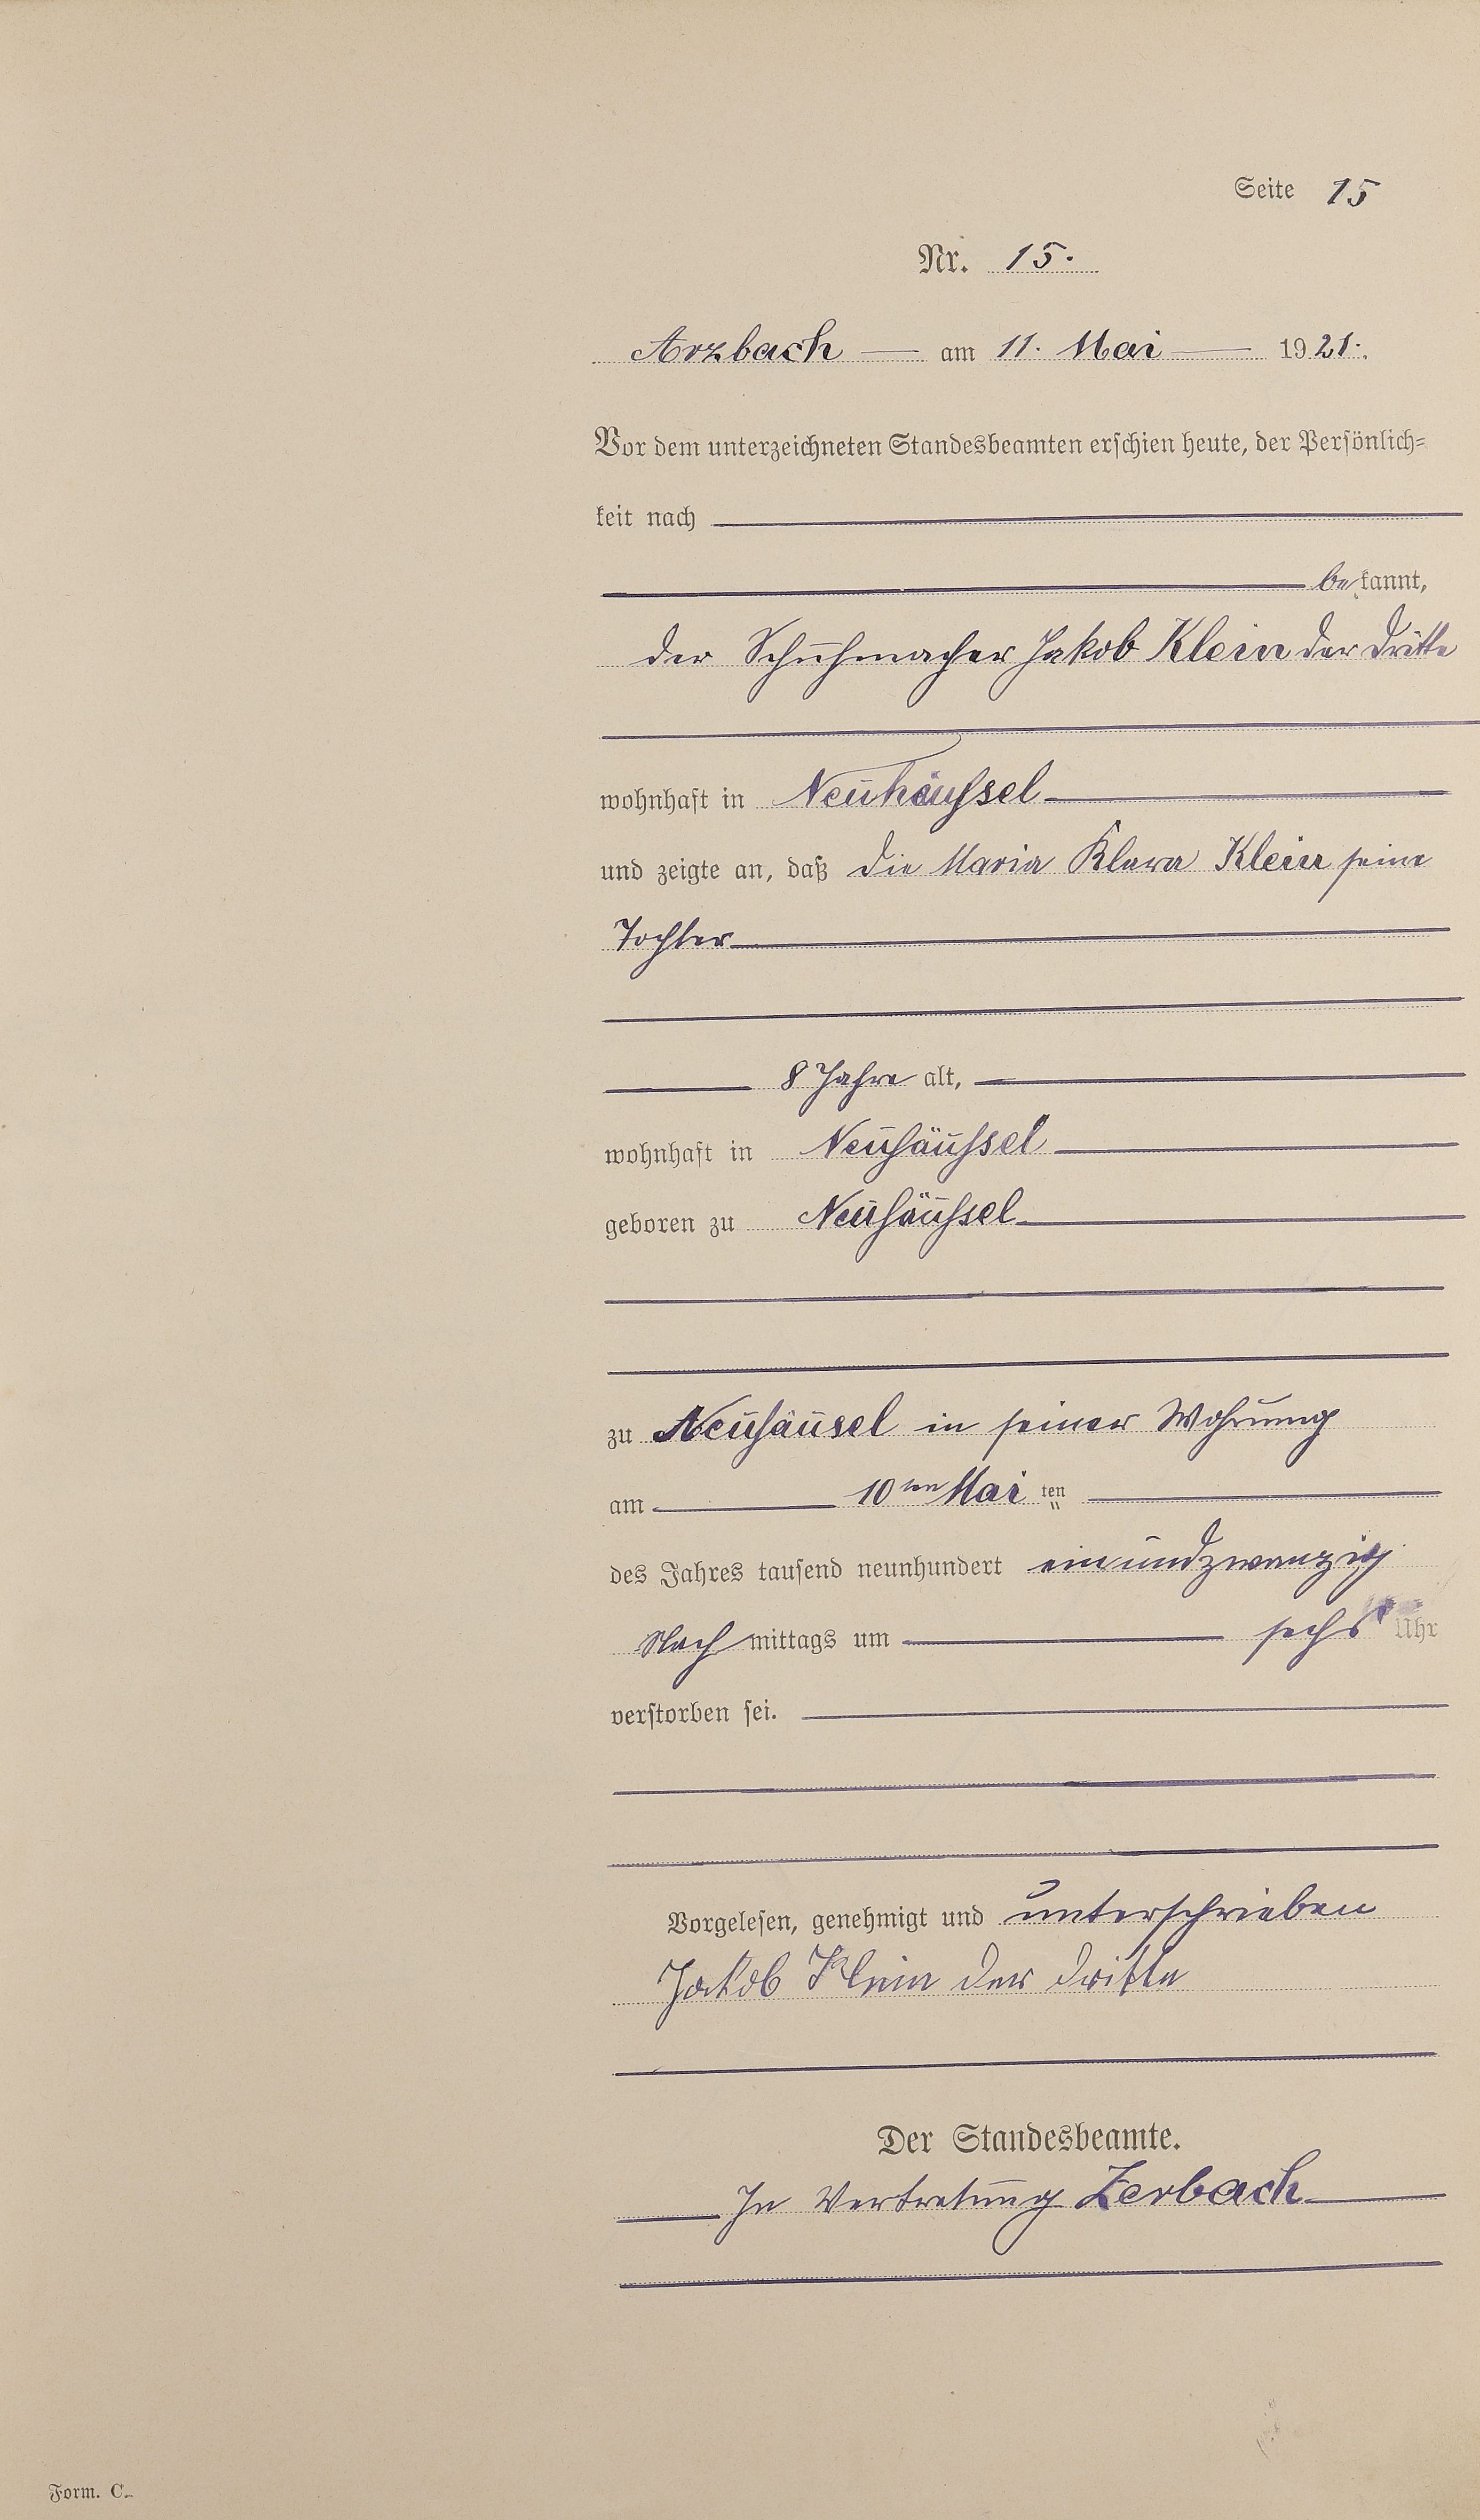 Seite 15
Nr. 15.
Arzbach — am 11. Mai — 1921.
Vor dem unterzeichneten Standesbeamten erschien heute, der Persönlich-
keit nach
bekannt,
der Schuhmacher Jakob Klein der Dritte
wohnhaft in Neuhäussel
und zeigte an, daß die Maria Klara Klein seine
Tochter
8 Jahre alt,
wohnhaft in Neuhäussel
geboren zu Neuhäussel
zu Neuhäusel in seiner Wohnung
am 10ten Mai ten
des Jahres tausend neunhundert einundzwanzig
Nachmittags um sechs Uhr
verstorben sei.
Vorgelesen, genehmigt und unterschrieben
Jakob Klein der dritte
Der Standesbeamte.
In Vertretung Zerbach
Form. C.